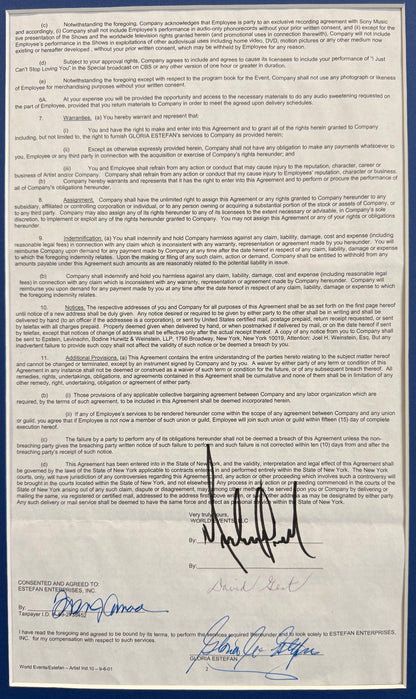 (c) Notwithstanding the foregoing, Company acknowledges that Employee is party to an exclusive recording agreement with Sony Music
and accordingly, (i) Company shall not include Employee's performance in audio-only phonorecords without your prior written consent, and (ii) except for the
live presentation of the Shows and the worldwide television rights granted herein (and promotional uses in connection therewith), Company will not include
Employee's performance in the Shows in exploitations of other audiovisual uses including home video, DVD, motion pictures or any other medium now
existing or hereafter developed , without your prior written consent, which may be withheld by Employee for any reason.
(d) Subject to your approval rights, Company agrees to include and agrees to cause its licensees to include your performance of "I Just
Can't Stop Loving You" in the Special broadcast on CBS or any other version of one hour or greater in duration.
(e) Notwithstanding the foregoing except with respect to the program book for the Event, Company shall not use any photograph or likeness
of Employee for merchandising purposes without your prior written consent.
6A. At your expense you will be provided the opportunity and access to the necessary materials to do any audio sweetening requested
on the part of Employee, provided that you return materials to Company in order to meet the agreed upon delivery schedules.
7. Warranties. (a) You hereby warrant and represent that:
(i) You have the right to make and enter into this Agreement and to grant all of the rights herein granted to Company
including, but not limited to, the right to furnish GLORIA ESTEFAN's services to Company as provided herein;
(ii) Except as otherwise expressly provided herein, Company shall not have any obligation to make any payments whatsoever to
you, Employee or any third party in connection with the acquisition or exercise of Company's rights hereunder; and
(iii) You and Employee shall refrain from any action or conduct that may cause injury to the reputation, character, career or
business of Artist and/or Company. Company shall refrain from any action or conduct that may cause injury to Employees' reputation, character or business.
(b) Company hereby warrants and represents that it has the right to enter into this Agreement and to perform or procure the performance of
all of Company's obligations hereunder.
8. Assignment. Company shall have the unlimited right to assign this Agreement or any rights granted to Company hereunder to any
subsidiary, affiliated or controlling corporation or individual, or to any person owning or acquiring a substantial portion of the stock or assets of Company, or
to any third party. Company may also assign any of its rights hereunder to any of its licensees to the extent necessary or advisable, in Company's sole
discretion, to implement or exploit any of the rights hereunder granted to Company. You may not assign this Agreement or any of your rights or obligations
hereunder.
9. Indemnification. (a) You shall indemnify and hold Company harmless against any claim, liability, damage, cost and expense (including
reasonable legal fees) in connection with any claim which is inconsistent with any warranty, representation or agreement made by you hereunder. You will
reimburse Company upon demand for any payment made by Company at any time after the date hereof in respect of any claim, liability, damage or expense
to which the foregoing indemnity relates. Upon the making or filing of any such claim, action or demand, Company shall be entitled to withhold from any
amounts payable under this Agreement such amounts as are reasonably related to the potential liability in issue.
(b) Company shall indemnify and hold you harmless against any claim, liability, damage, cost and expense (including reasonable legal
fees) in connection with any claim which is inconsistent with any warranty, representation or agreement made by Company hereunder. Company will reimburse
you upon demand for any payment made by you at any time after the date hereof in respect of any claim, liability, damage or expense to which
the foregoing indemnity relates.
10. Notices. The respective addresses of you and Company for all purposes of this Agreement shall be as set forth on the first page hereof
until notice of a new address shall be duly given. Any notice desired or required to be given by either party to the other shall be in writing and shall be
delivered by hand (to an officer if the addressee is a corporation), or sent by United States certified mail, postage prepaid, return receipt requested, or sent
by telefax with all charges prepaid. Properly deemed given when delivered by hand, or when postmarked if delivered by mail, or on the date hereof if sent
by telefax, except that notices of change of address shall be effective only after the actual receipt thereof. A copy of any notice from you to Company shall
be sent to Epstein, Levinsohn, Bodine Hurwitz & Weinstein, LLP, 1790 Broadway, New York, New York 10019, Attention: Joel H. Weinstein, Esq. But any
inadvertent failure to provide such copy shall not affect the validity of such notice or be deemed a breach by you.
11. Additional Provisions. (a) This Agreement contains the entire understanding of the parties hereto relating to the subject matter hereof
and cannot be changed or terminated, except by an instrument signed by Company and by you. A waiver by either party of any term or condition of this
Agreement in any instance shall not be deemed or construed as a waiver of such term or condition for the future, or of any subsequent breach thereof. All
remedies, rights, undertakings, obligations, and agreements contained in this Agreement shall be cumulative and none of them shall be in limitation of any
other remedy, right, undertaking, obligation or agreement of either party.
(b) (i) Those provisions of any applicable collective bargaining agreement between Company and any labor organization which are
required, by the terms of such agreement, to be included in this Agreement shall be deemed incorporated herein.
(ii) If any of Employee's services to be rendered hereunder come within the scope of any agreement between Company and any union
or guild, you agree that if Employee is not now a member of such union or guild, Employee will join such union or guild within fifteen (15) day of complete
execution hereof.
(c) The failure by a party to perform any of its obligations hereunder shall not be deemed a breach of this Agreement unless the non-
breaching party gives the breaching party written notice of such failure to perform and such failure is not corrected within ten (10) days from and after the
breaching party's receipt of such notice.
(d) This Agreement has been entered into in the State of New York, and the validity, interpretation and legal effect of this Agreement shall
be governed by the laws of the State of New York applicable to contracts entered in and performed entirely within the State of New York. The New York
courts, only, will have jurisdiction of any controversies regarding this Agreement; any action or other proceeding which involves such a controversy will
be brought in the courts located within the State of New York, and not elsewhere. Any process in any action or proceeding commenced in the courts of
the State of New York arising out of any such claim, dispute or disagreement, may among other methods, be served upon you or Company by delivering or
mailing the same, via registered or certified mail, addressed to the address first above given, or such other address as may be designated by either party.
Any such delivery or mail service shall be deemed to have the same force and effect as personal service within the State of New York.
Very truly yours,
WORLD EVENTS, LLC
By:
By:
David Gest
CONSENTED AND AGREED TO:
ESTEFAN ENTERPRISES, INC.
By:
Taxpayer I.D.
I have read the foregoing and agreed to be bound by its terms, to perform the services required thereunder and to look solely to ESTEFAN ENTERPRISES,
INC. for my compensation with respect to such services.
Gloria Estefan
GLORIA ESTEFAN
World Events/Estefan – Artist Ind.10 – 9-6-01
2